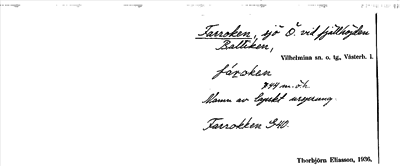 Farroken, sjö Ö. vid fjällhöjden
Baltiken,
Vilhelmina sn. o. tg., Västerb. l.
fároken
744 m.ö.h.
Namn av lapskt ursprung.
Farrokken G40.
Thorbjörn Eliasson, 1936.